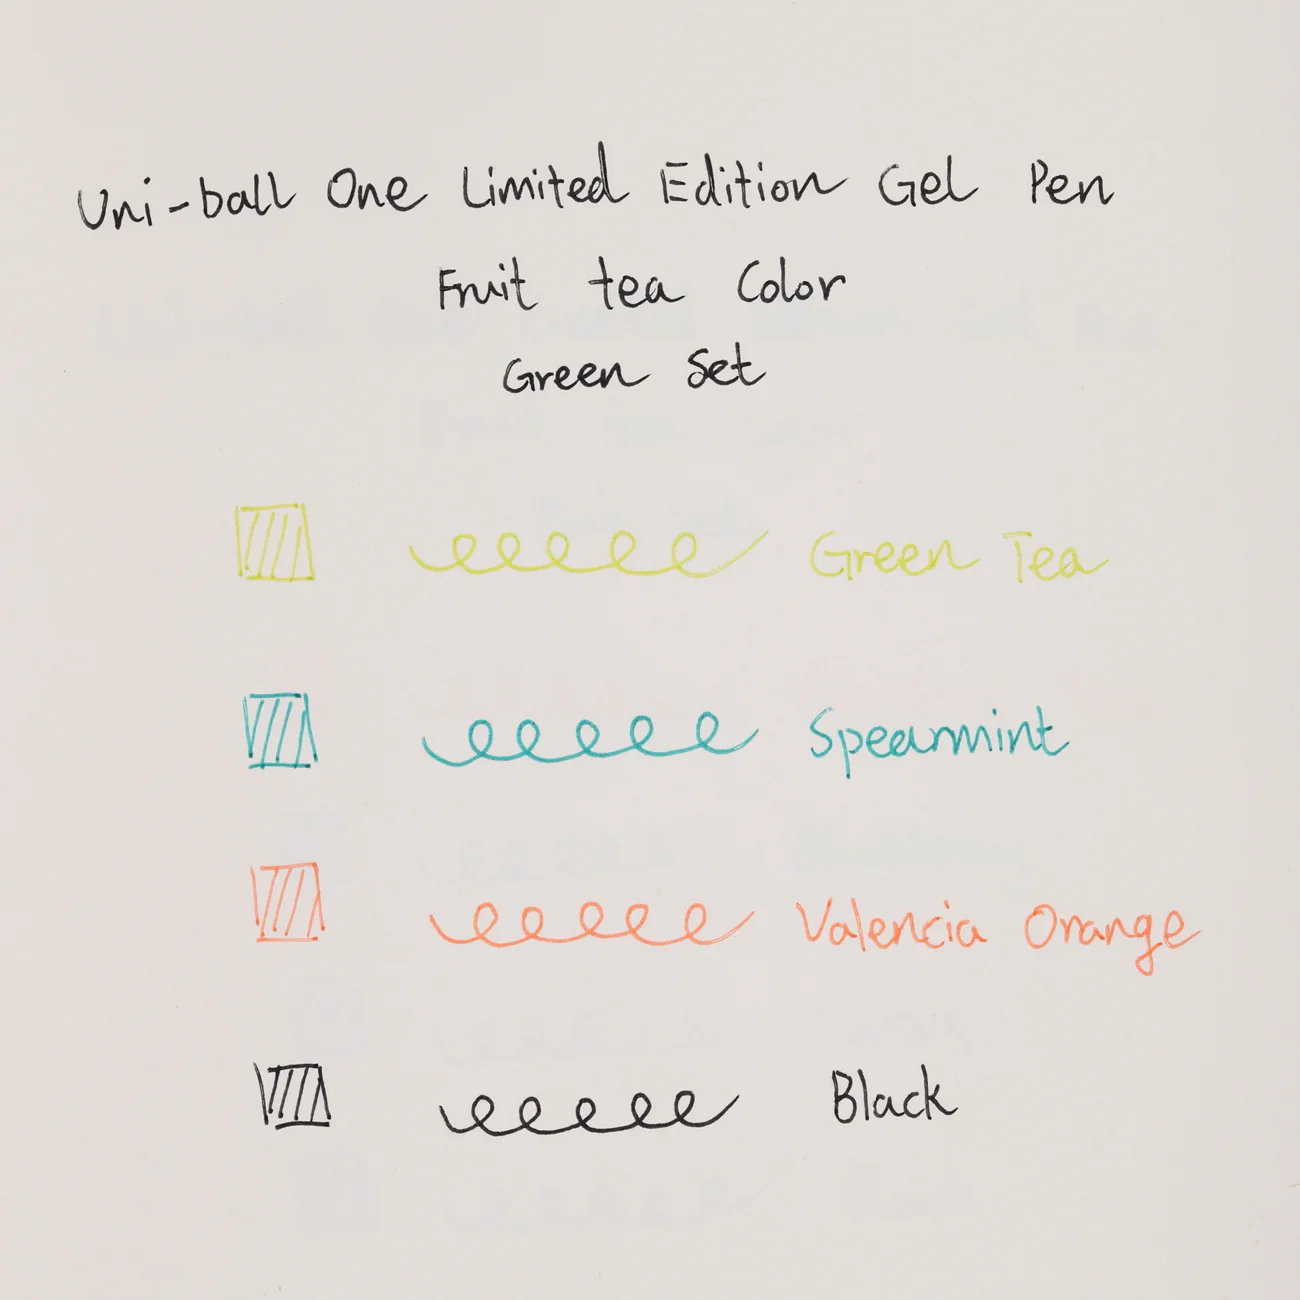 Uni-ball One Limited Edition Gel Pen
Fruit tea Color
Green Set
Green Tea
Spearmint
Valencia Orange
Black